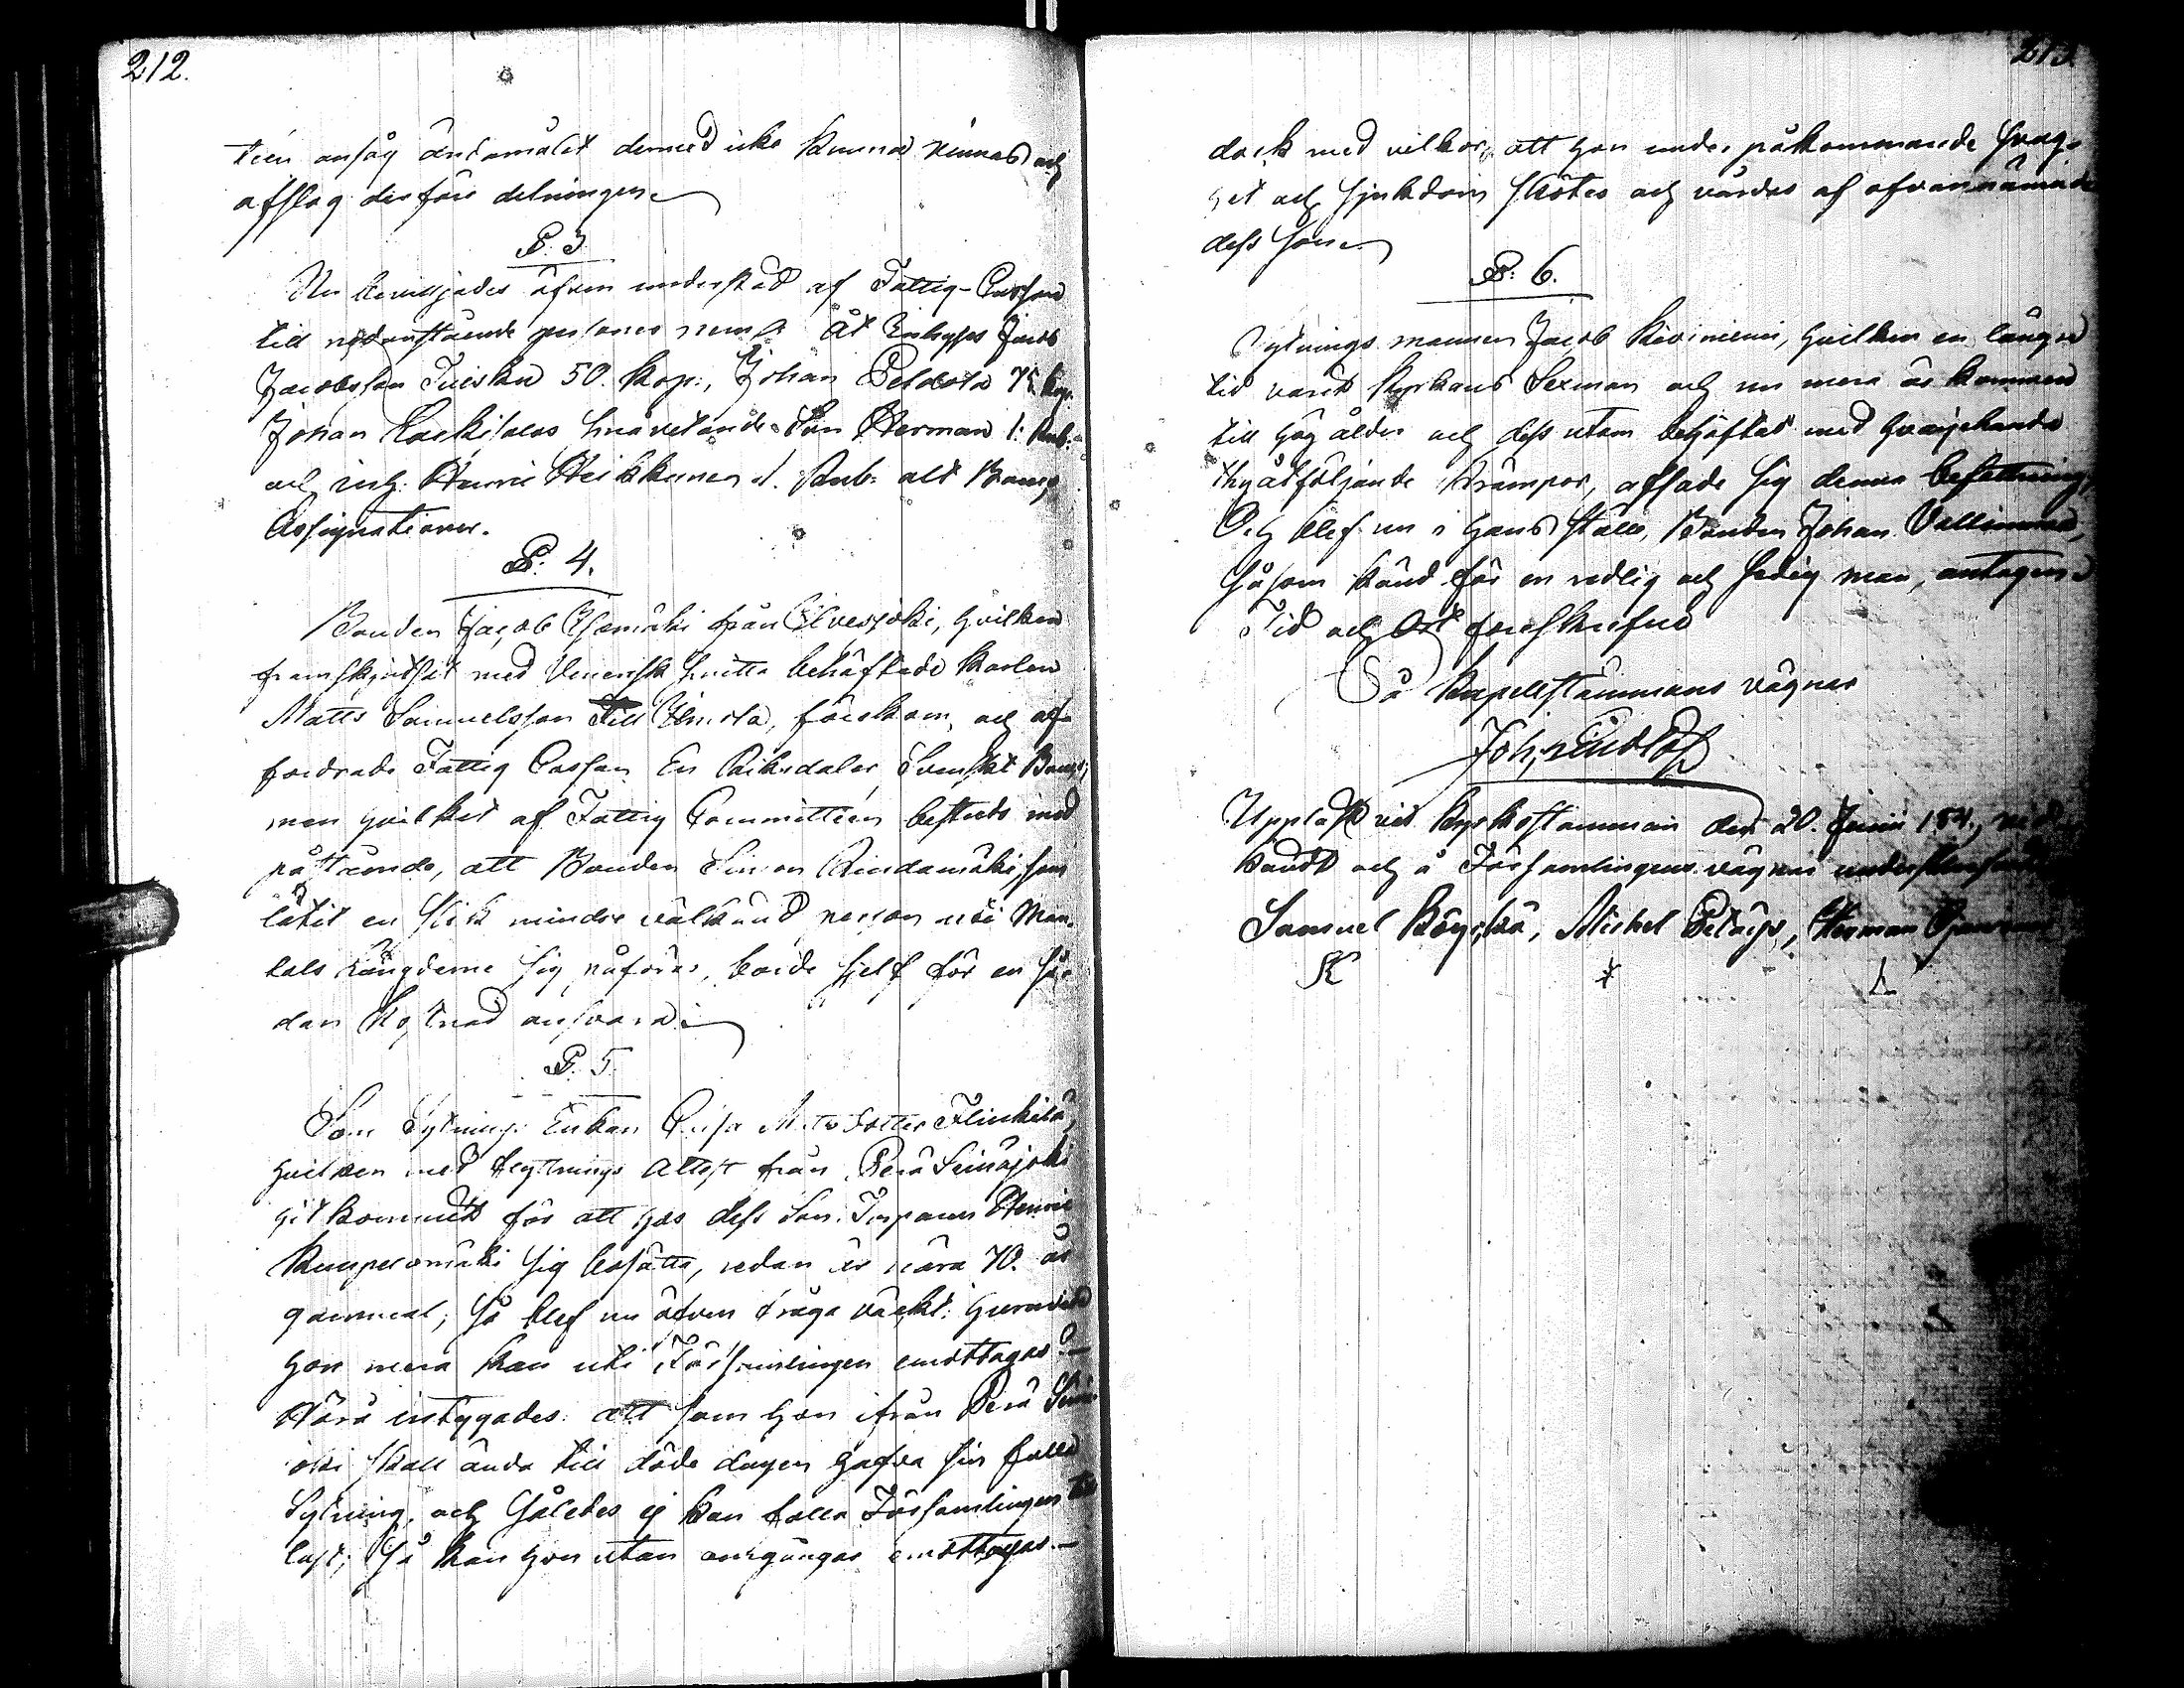 212.
teen ansåg ändamålet dermed icke kunna vinnas och
afslog derföre delningen.
P. 3.
Nu beviljades äfven understöd af Fattig-Cassan
till nedanstående personer neml. Åt Inhyses Jacob
Jacobsson Tuiskü 50. kop:, Johan Peldola 75 kop.
Johan Koskelas Son Herman 1. Rub:
och inh: Henric Heikkinen 1. Rub: alt Banco
Assignationer.
P. 4.
Bonden Jacob Ylemäki från Ilvesjoki, hvilken
framskjutsat med Venerisk smitta behäftade Karlen
Matts Samuelsson Till, förekom och af-
fordrade Fattig Cassan En Riksdaler Svenskt Banco;
men hvilket af Fattig Committéen bestreds med
påstående, att Bonden Simon Rindamäki, som
låtit en slik mindre välkänd person uti Man-
tals Längderne sig påföras, borde sjelf för en så-
dan kostnad ansvara.
P. 5.
Som Sytnings Enkan Caisa Matsdotter Flinkilä,
hvilken med flyttnings Attest från Perä Seinäjoki
hit kommit för att hos dess Son Torparen Henric
Kamperomäki sig bosätta, redan är nära 70. år
gammal; Så blef nu äfven fråga väckt: huruvida
hon mera kan uti Församlingen emottagas?—
Härå intygades: att som hon ifrån Perä Seinä
joki skall ända till döde dagen hafva sin fulla
Sytning, och således ej kan falla Församlingen till
last; Så kan hon utan omgångar emottagas.—
213.
dock med vilkor, att hon under påkommande svag-
het och sjukdom skötes och vårdas af ofvannämnde
dess Son.
P. 6.
Sytnings mannen Jacob Kiviniemi, hvilken en längre
tid varit Kyrkans Sexman och nu mera är kommen
till hög ålder och dess utom behäftad med hvarjehanda
thyåtföljande krämpor, afsade sig denna befattning,
Och blef nu i hans ställe, Bonden Johan
Såsom känd för en redlig och sedig man, antagen.
Tid och Ort föreskrifne
På Kapellstämmans vägnar
Joh:
Uppläst vid Kyrkostämman den 20. Junii 184,
kändt och å Församlingens vägnar underskrefvo
Samuel, Michel, Herman